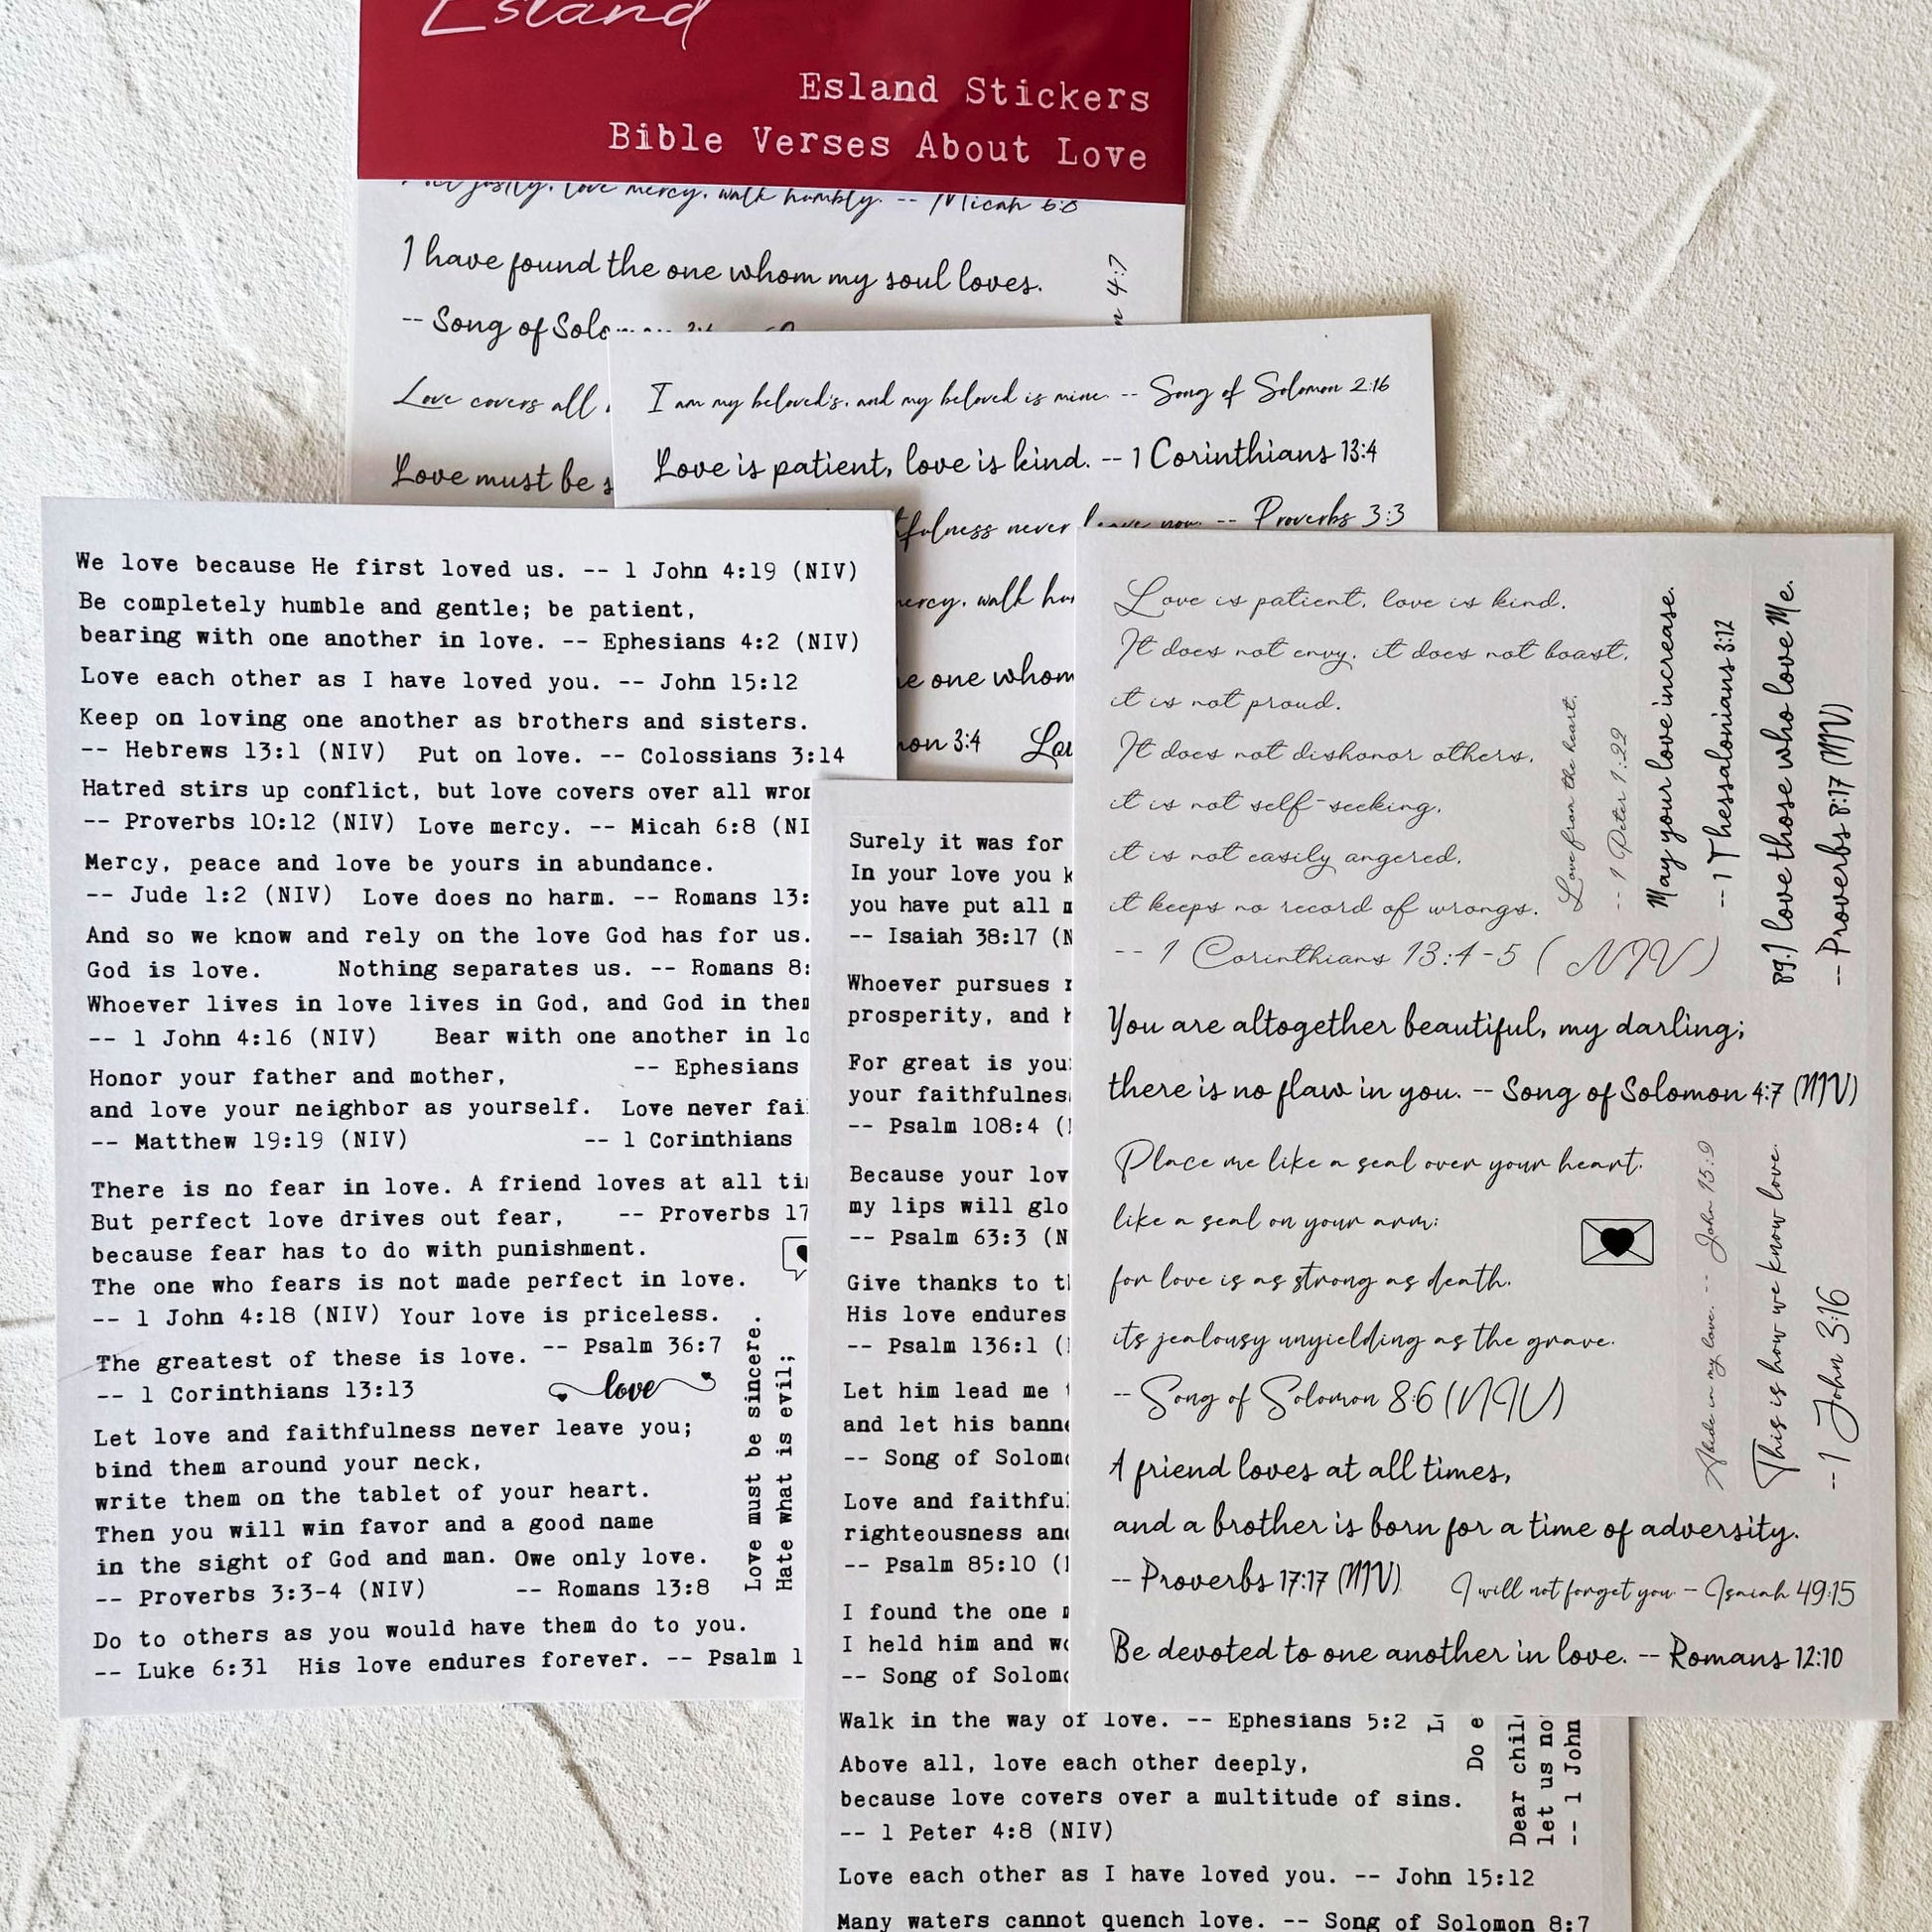 Esland
Esland Stickers
Bible Verses About Love
love mercy, walk humbly. -- Micah 6:8
I have found the one whom my soul loves.
-- Song of
4:7
Love covers all
Love must be
I am my beloved's, and my beloved is mine. -- Song of Solomon 2:16
Love is patient, love is kind. -- 1 Corinthians 13:4
never leave you. -- Proverbs 3:3
walk
one whom
3:4
We love because He first loved us. -- 1 John 4:19 (NIV)
Be completely humble and gentle; be patient,
bearing with one another in love. -- Ephesians 4:2 (NIV)
Love each other as I have loved you. -- John 15:12
Keep on loving one another as brothers and sisters.
-- Hebrews 13:1 (NIV) Put on love. -- Colossians 3:14
Hatred stirs up conflict, but love covers over all
-- Proverbs 10:12 (NIV) Love mercy. -- Micah 6:8
Mercy, peace and love be yours in abundance.
-- Jude 1:2 (NIV) Love does no harm. -- Romans 13:
And so we know and rely on the love God has for us.
God is love. Nothing separates us. -- Romans 8:
Whoever lives in love lives in God, and God in
-- 1 John 4:16 (NIV) Bear with one another in
-- Ephesians
Honor your father and mother,
and love your neighbor as yourself. Love never
-- Matthew 19:19 (NIV) -- 1 Corinthians
There is no fear in love. A friend loves at all
But perfect love drives out fear, -- Proverbs 17
because fear has to do with punishment.
The one who fears is not made perfect in love.
-- 1 John 4:18 (NIV) Your love is priceless.
-- Psalm 36:7
The greatest of these is love.
-- 1 Corinthians 13:13
love
Let love and faithfulness never leave you;
bind them around your neck,
write them on the tablet of your heart.
Then you will win favor and a good name
in the sight of God and man. Owe only love.
-- Proverbs 3:3-4 (NIV) -- Romans 13:8
Do to others as you would have them do to you.
-- Luke 6:31 His love endures forever. -- Psalm
Love must be sincere.
Hate what is evil;
Surely it was for
In your love you
you have put all
-- Isaiah 38:17
Whoever pursues
prosperity, and
For great is
your
-- Psalm 108:4
Because your
my lips will
-- Psalm 63:3
Give thanks to
His love endures
-- Psalm 136:1
Let him lead me
and let his
-- Song of
Love and
righteousness
-- Psalm 85:10
I found the one
I held him and
-- Song of
Walk in the way of love. -- Ephesians 5:2
Above all, love each other deeply,
because love covers over a multitude of sins.
-- 1 Peter 4:8 (NIV)
Love each other as I have loved you. -- John 15:12
Many waters cannot quench love. -- Song of Solomon 8:7
Do
Dear
let us
-- 1 John
Love is patient, love is kind.
It does not envy, it does not boast,
it is not proud.
It does not dishonor others,
it is not self-seeking,
it is not easily angered,
it keeps no record of wrongs.
-- 1 Corinthians 13:4-5 (NIV)
Love from the heart.
-- 1 Peter 1:22
May your love increase.
-- 1 Thessalonians 3:12
89.I love those who love Me.
-- Proverbs 8:17 (NIV)
You are altogether beautiful, my darling;
there is no flaw in you. -- Song of Solomon 4:7 (NIV)
Place me like a seal over your heart,
like a seal on your arm;
for love is as strong as death,
its jealousy unyielding as the grave.
-- Song of Solomon 8:6 (NIV)
Abide in my love. -- John 15:9
This is how we know love.
-- 1 John 3:16
A friend loves at all times,
and a brother is born for a time of adversity.
-- Proverbs 17:17 (NIV)
I will not forget you -- Isaiah 49:15
Be devoted to one another in love. -- Romans 12:10